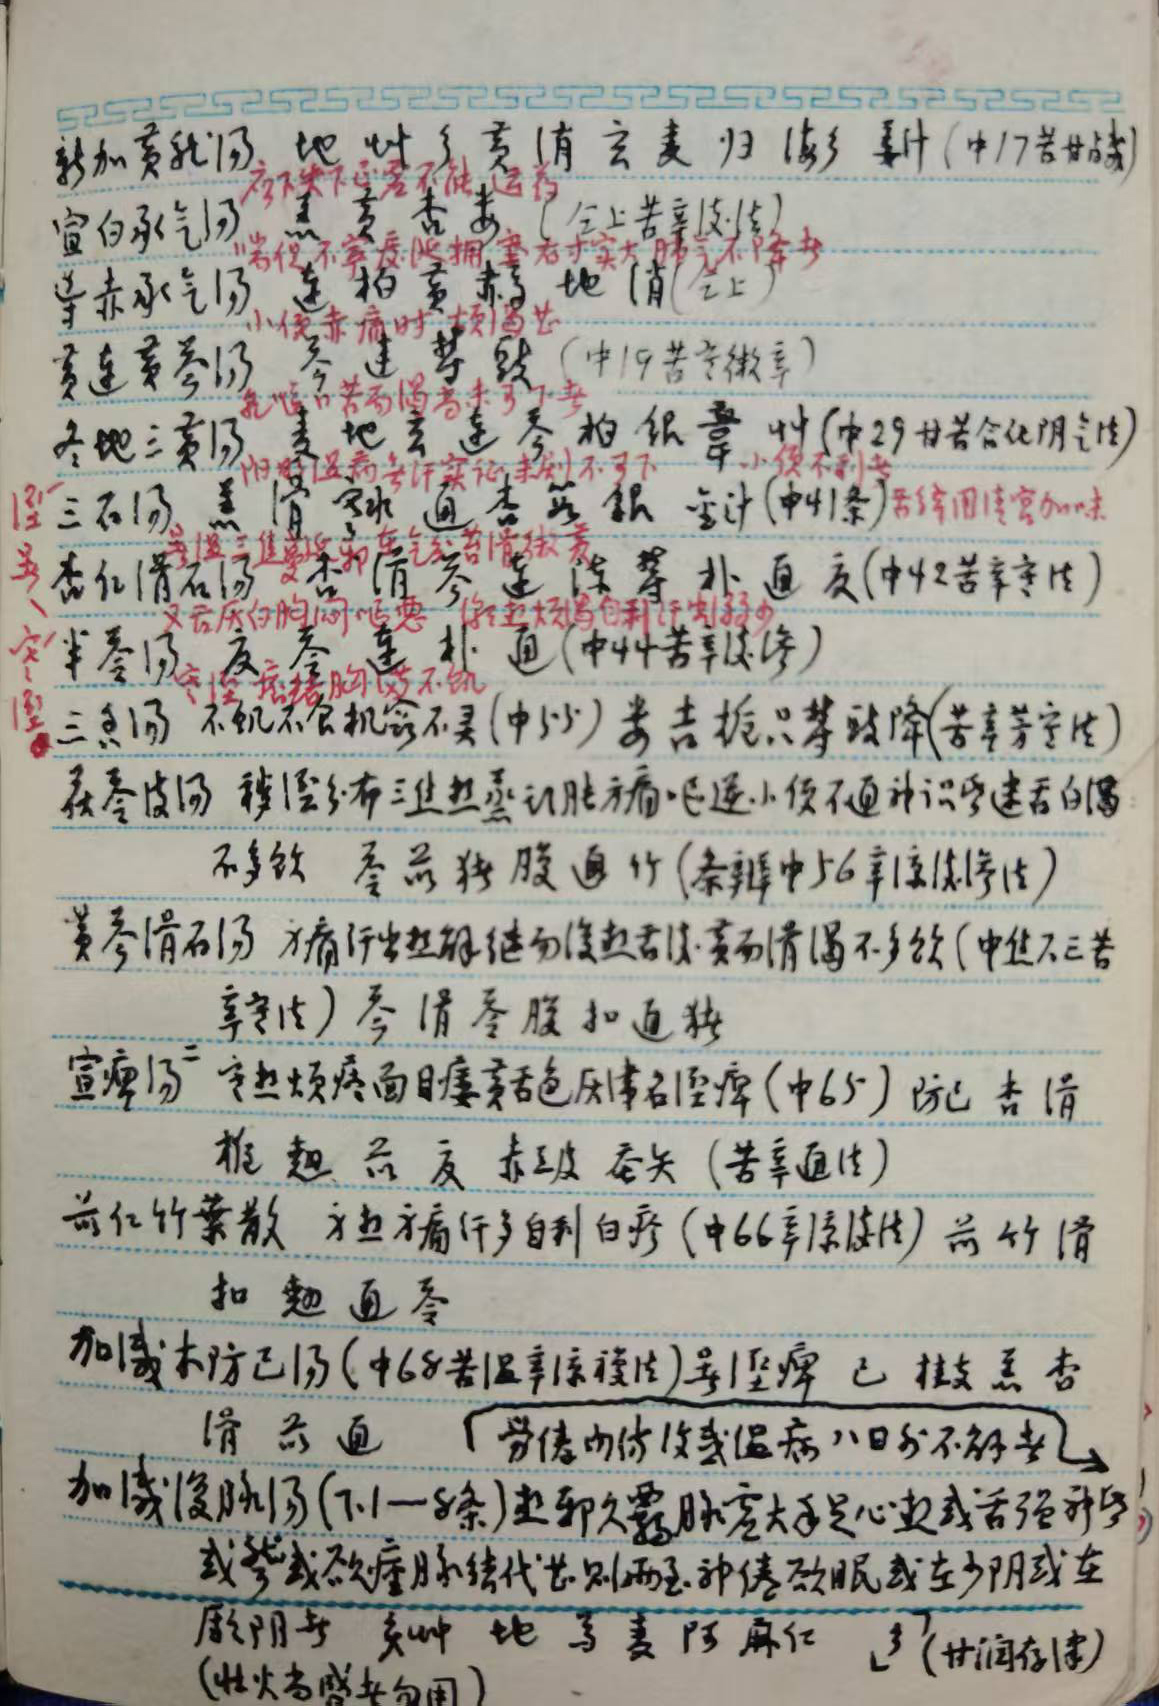 新加黄龙汤 地 草 参 黄 消 玄 麦 归 海参 姜汁(中17苦甘咸)
应下失下正虚不能运药
宣白承气汤 羔 黄 杏 娄 (仝上苦辛淡法)
喘促不宁痰涎拥塞右寸实大肺气不降者
导赤承气汤 连 柏 黄 赤芍 地 消(仝上)
小便赤痛时烦渴甚
黄连黄芩汤 芩 连 郁 豉 (中19苦寒微辛)
干呕口苦而渴尚未可下者
冬地三黄汤 麦 地 玄 连 芩 柏 银 苇 草(中29甘苦合化阴气法)
阳明温病无汗实证未剧不可下 小便不利者
三石汤 羔 滑 寒水 通 杏 茹 银 金汁(中41条)舌绛用清宫加味
暑温三焦蔓延邪在气分舌滑微黄
杏仁滑石汤 杏 滑 芩 连 陈 郁 朴 通 夏(中42苦辛寒法)
又舌灰白胸闷呕恶 潮热烦渴自利汗出溺少
湿暑、寒湿
半苓汤 夏 苓 连 朴 通(中44苦辛淡渗)
寒湿痞结胸满不饥
三香汤 不饥不食机窍不灵(中55)娄 吉 栀 只 郁 豉 降(苦辛芳香法)
茯苓皮汤 秽湿分布三焦热蒸头胀身痛呕逆小便不通神识昏迷舌白渴
不多饮 苓 苡 猪 腹 通 竹(条辨中56辛凉淡渗法)
黄芩滑石汤 身痛汗出热解继而复热舌淡黄而滑渴不多饮(中焦六三苦
辛寒法)芩 滑 苓 腹 扣 通 猪
宣痹汤二 寒热烦疼面目痿黄舌色灰滞名湿痹(中65)防己 杏 滑
栀 翘 苡 夏 赤豆皮 蚕矢 (苦辛通法)
苡仁竹葉散 身热身痛汗多自利白疹(中66辛凉淡法)苡 竹 滑
扣 翘 通 苓
加减木防己汤(中68苦温辛凉複法)暑湿痹 己 桂支 羔 杏
滑 苡 通
劳倦内伤复感温病八日外不解者
加减復脉汤(下.1—8条)热邪久羁脉虚大手足心热或舌强神昏
或聋或欲痉脉结代甚则两至神倦欲眠或在少阴或在
厥阴者 炙草 地 芍 麦 阿 麻仁 (甘润存津)
(壮火尚盛者勿用)